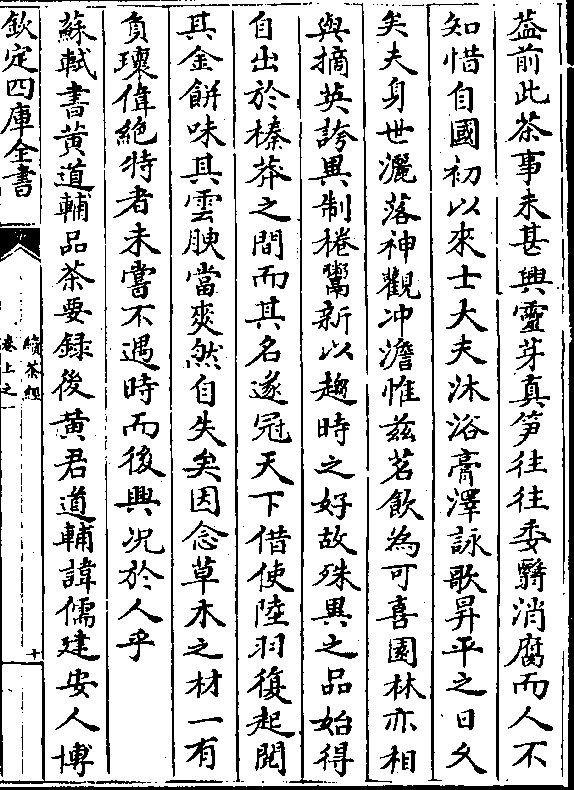 葢前此茶事未甚興靈芽真笋往往委翳消腐而人不
知惜自國初以來士大夫沐浴膏澤詠歌昇平之日久
矣夫身世灑落神觀冲澹惟兹茗飲為可喜園林亦相
與摘英誇異制棬鬻新以趨時之好故殊異之品始得
自出於榛莽之間而其名遂冠天下借使陸羽復起閲
其金餅味其雲腴當爽然自失矣因念草木之材一有
負瓌偉絶特者未嘗不遇時而後興况於人乎
蘇軾書黄道輔品茶要録後黄君道輔諱儒建安人博
欽定四庫全書
續茶經
卷上之一
十